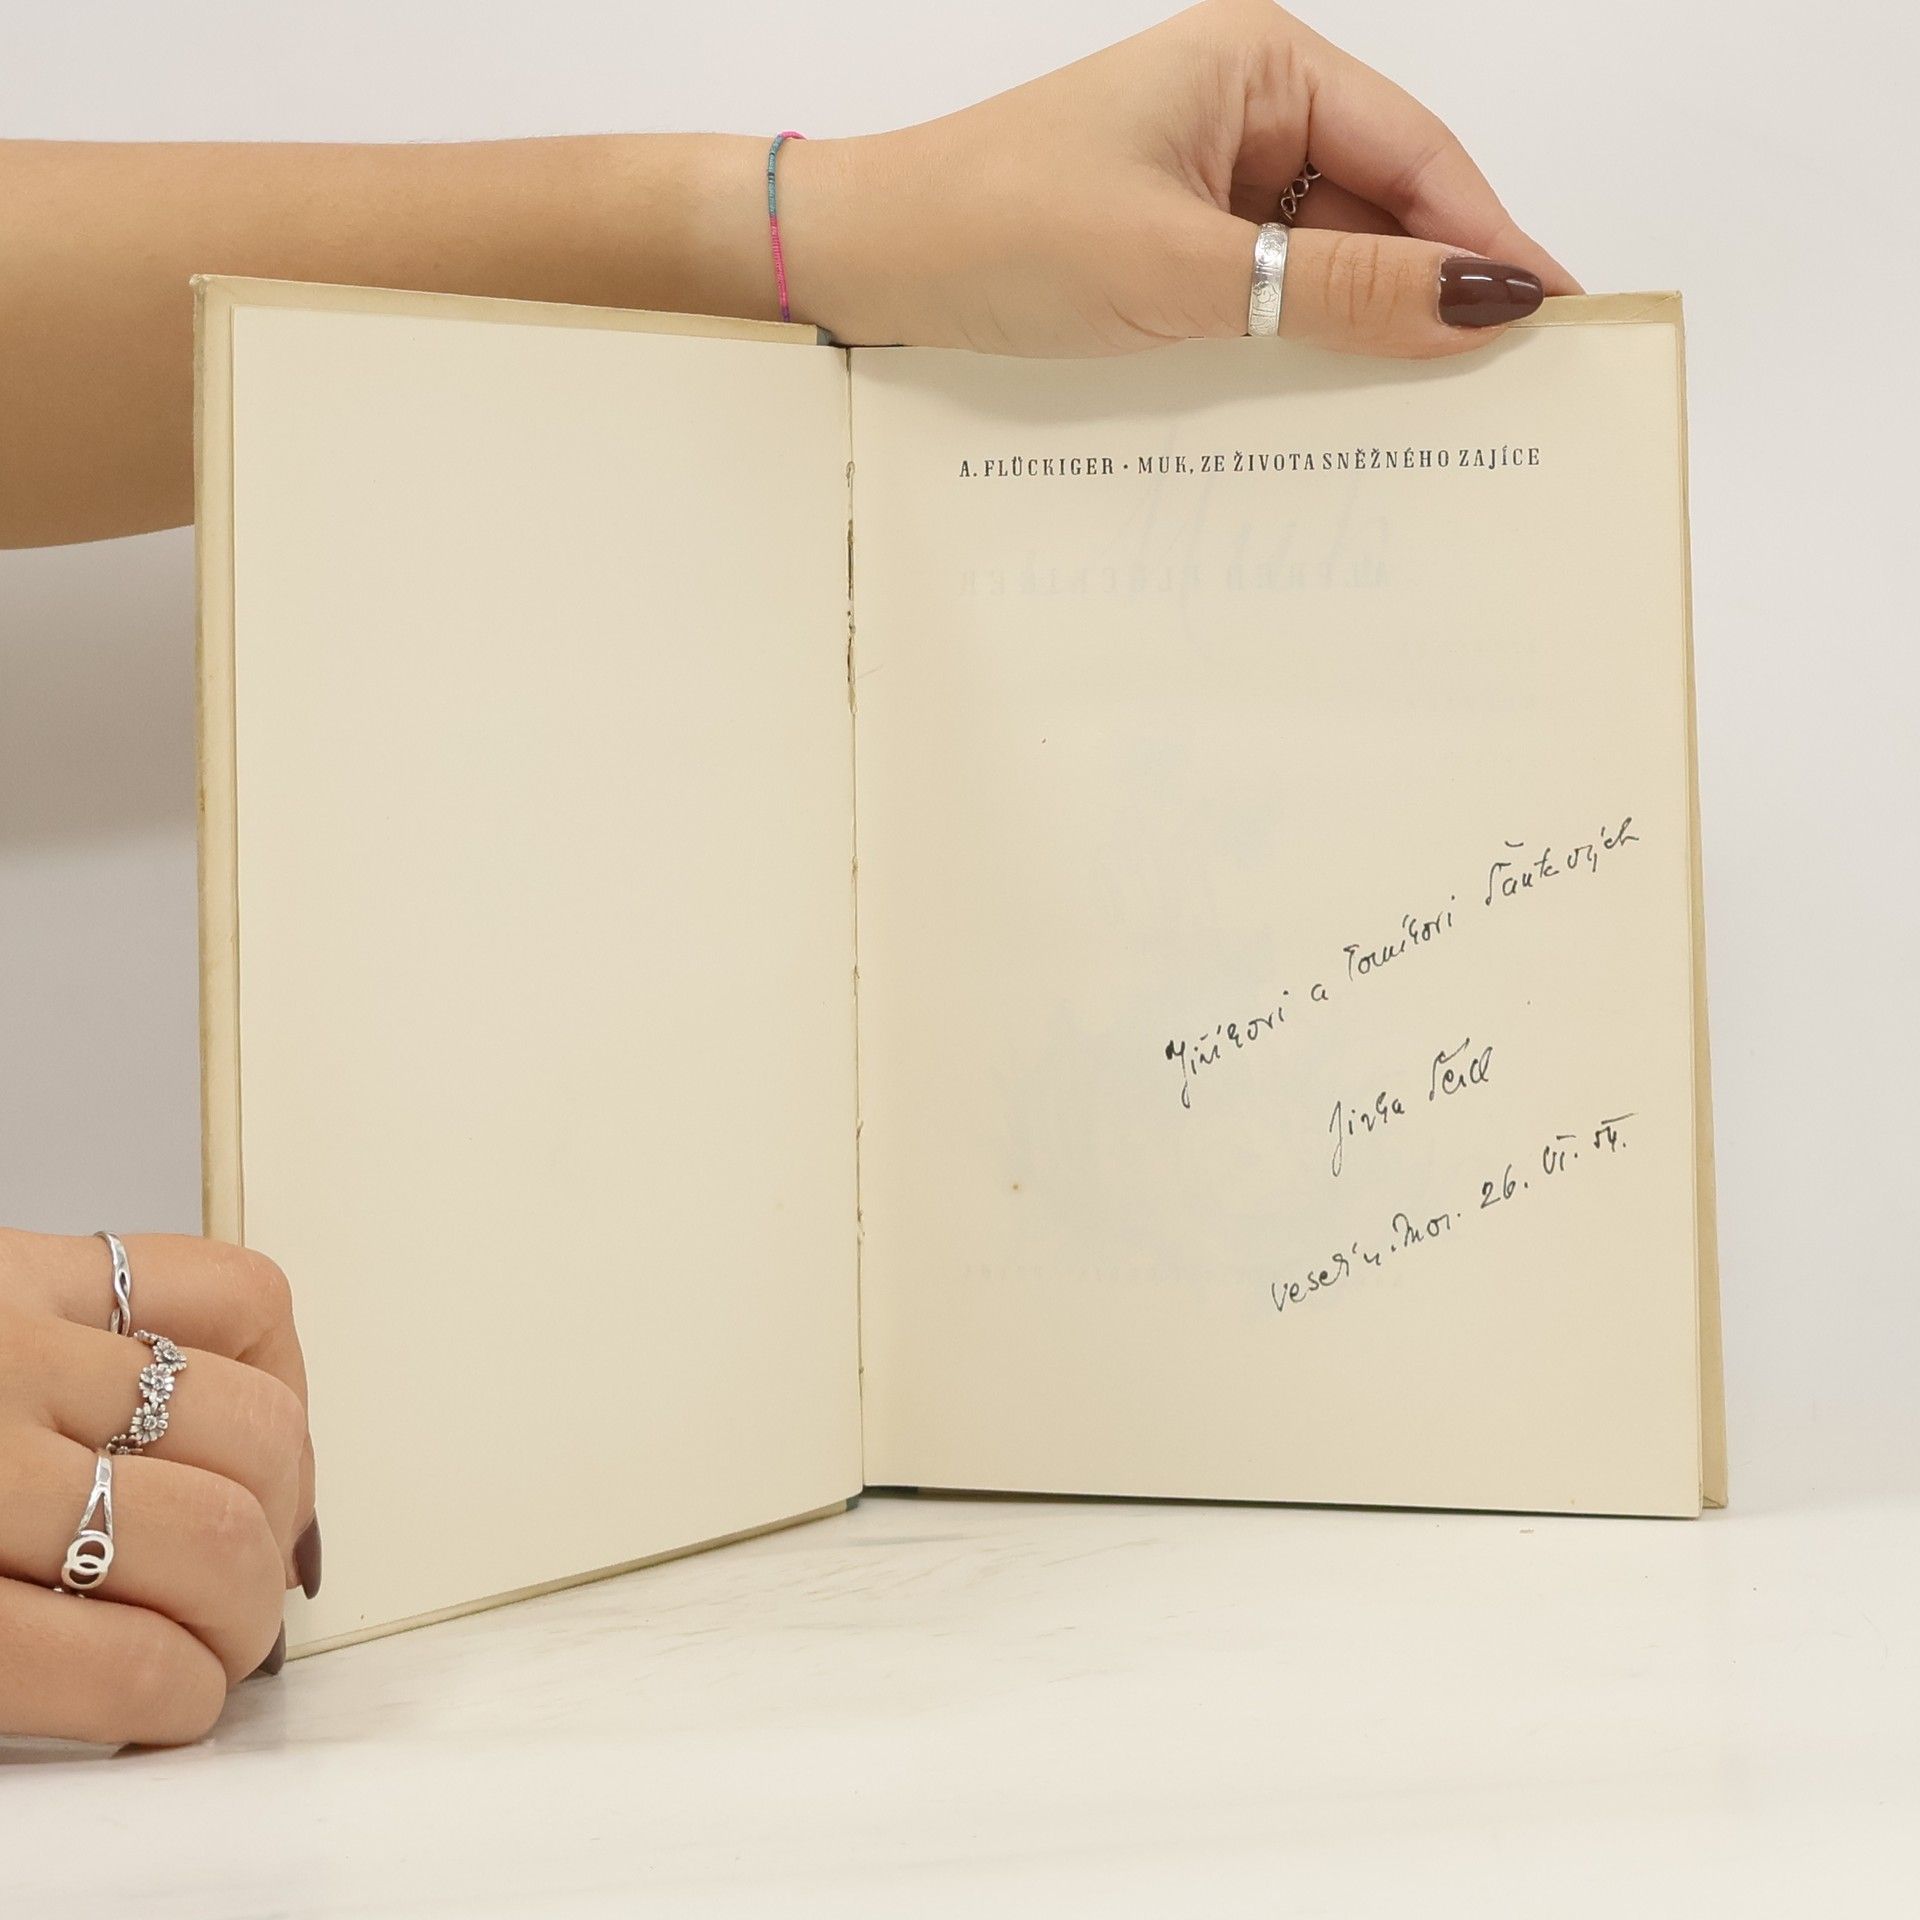 A. FLÜCKIGER • MUK, ZE ŽIVOTA SNĚŽNÉHO ZAJÍCE
ALFRED FLÜCKIGER
Jiříkovi a Tomíkovi Šantových
Jirka
Veselí n. Mor. 26. VI. 54.